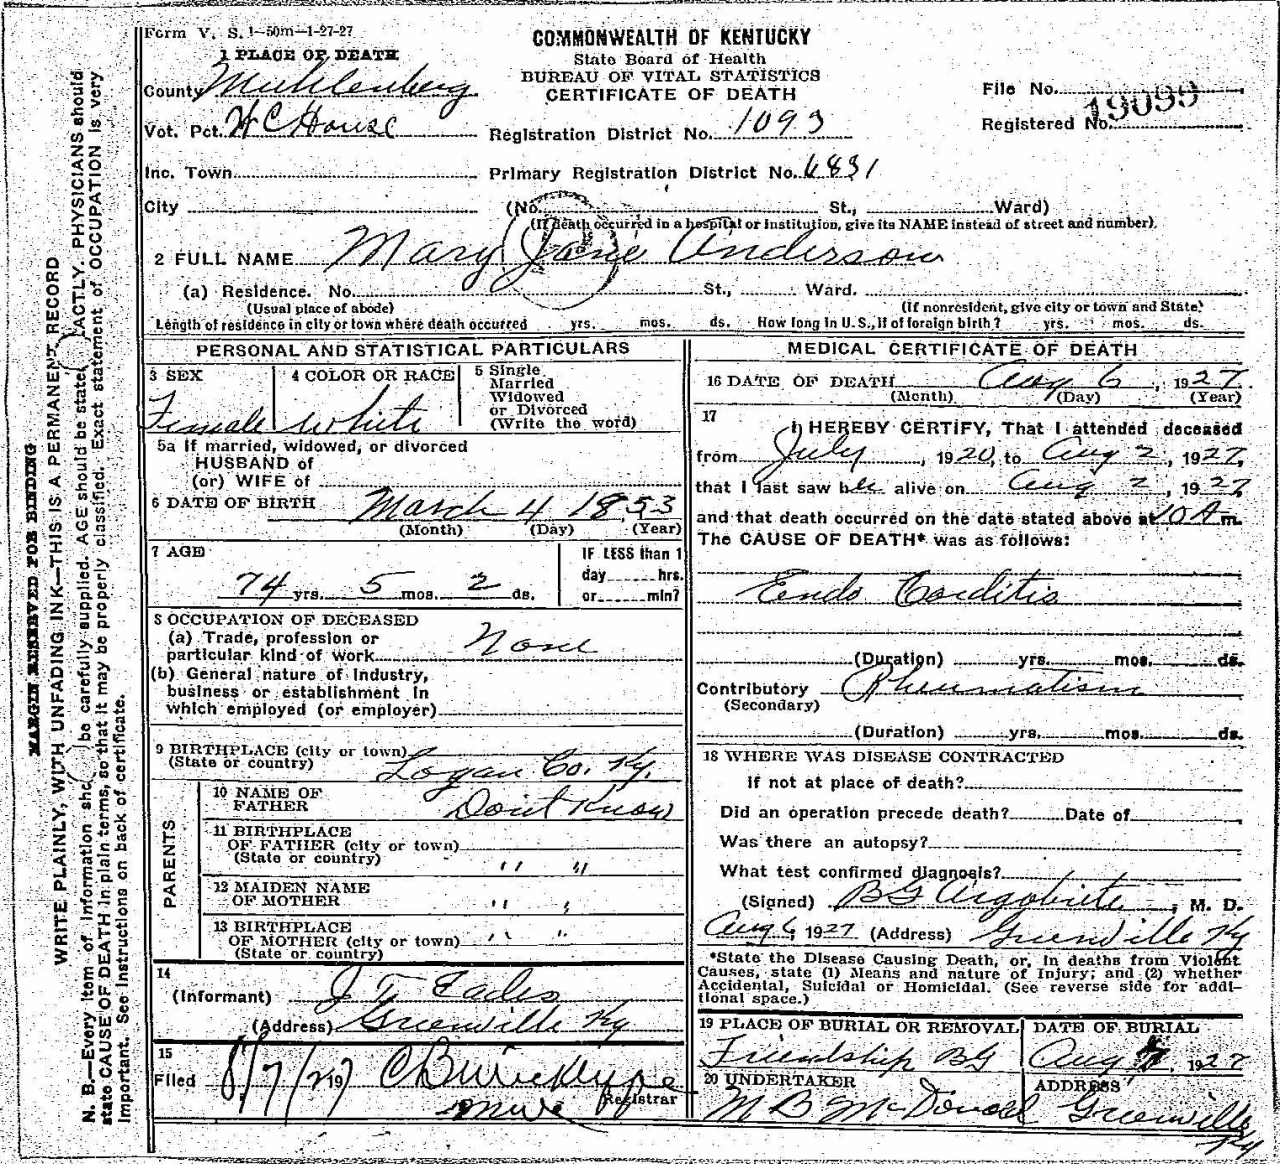 Form V. S. 1—50m—1-27-27
COMMONWEALTH OF KENTUCKY
State Board of Health
BUREAU OF VITAL STATISTICS
CERTIFICATE OF DEATH
1 PLACE OF DEATH
County Muhlenberg
File No.
Vot. Pct. W C House
Registration District No. 1093
Registered No. 19099
Inc. Town
Primary Registration District No. 6831
City (No. St., Ward)
(If death occurred in a hospital or institution, give its NAME instead of street and number).
2 FULL NAME Mary Jane Anderson
(a) Residence. No. St., Ward.
(Usual place of abode) (If nonresident, give city or town and State)
Length of residence in city or town where death occurred yrs. mos. ds. How long in U.S., if of foreign birth? yrs. mos. ds.
PERSONAL AND STATISTICAL PARTICULARS
3 SEX Female
4 COLOR OR RACE White
5 Single
Married
Widowed
or Divorced
(Write the word)
5a If married, widowed, or divorced
HUSBAND of
(or) WIFE of
6 DATE OF BIRTH March 4 1853
(Month) (Day) (Year)
7 AGE
74 yrs. 5 mos. 2 ds.
IF LESS than 1
day hrs.
or min?
8 OCCUPATION OF DECEASED
(a) Trade, profession or
particular kind of work None
(b) General nature of industry,
business or establishment in
which employed (or employer)
9 BIRTHPLACE (city or town)
(State or country) Logan Co. Ky.
PARENTS
10 NAME OF
FATHER Don't Know
11 BIRTHPLACE
OF FATHER (city or town)
(State or country) " "
12 MAIDEN NAME
OF MOTHER " "
13 BIRTHPLACE
OF MOTHER (city or town) " "
(State or country)
14
(Informant) J T Eades
(Address) Greenville Ky
15
Filed 8/7/27 19
Registrar
MEDICAL CERTIFICATE OF DEATH
16 DATE OF DEATH Aug 6, 1927
(Month) (Day) (Year)
17
I HEREBY CERTIFY, That I attended deceased
from July, 1920, to Aug 2, 1927,
that I last saw her alive on Aug 2, 1927
and that death occurred on the date stated above at 10 A m.
The CAUSE OF DEATH* was as follows:
Endo Carditis
(Duration) yrs. mos. ds.
Contributory Rheumatism
(Secondary)
(Duration) yrs. mos. ds.
18 WHERE WAS DISEASE CONTRACTED
if not at place of death?
Did an operation precede death? Date of
Was there an autopsy?
What test confirmed diagnosis?
(Signed) B G Argabrite, M. D.
Aug 6, 1927 (Address) Greenville Ky
*State the Disease Causing Death, or, in deaths from Violent
Causes, state (1) Means and nature of Injury; and (2) whether
Accidental, Suicidal or Homicidal. (See reverse side for addi-
tional space.)
19 PLACE OF BURIAL OR REMOVAL
Friendship BG
DATE OF BURIAL
Aug 7, 1927
20 UNDERTAKER
M B McDonald
ADDRESS
Greenville
Ky
MARGIN RESERVED FOR BINDING
WRITE PLAINLY, WITH UNFADING INK—THIS IS A PERMANENT RECORD
N. B.—Every item of information should be carefully supplied. AGE should be stated EXACTLY. PHYSICIANS should
state CAUSE OF DEATH in plain terms, so that it may be properly classified. Exact statement of OCCUPATION is very
important. See instructions on back of certificate.